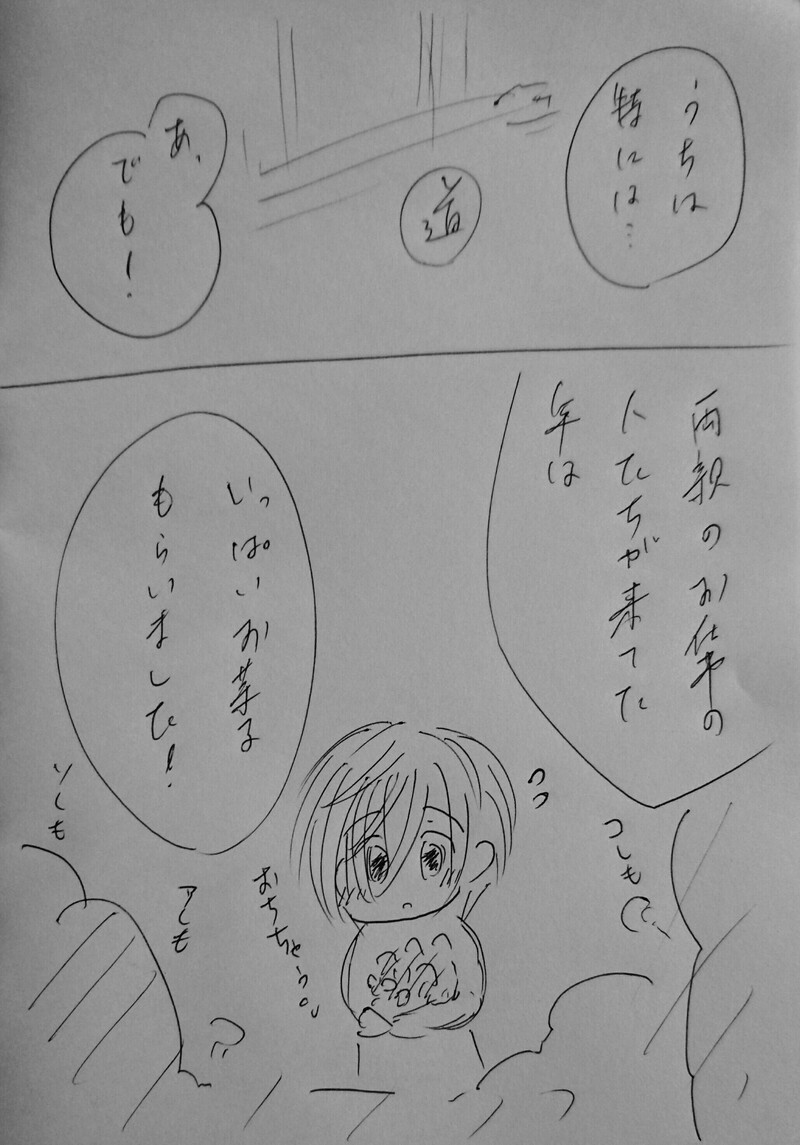 うちは
特には…
道
あ、
でも!
両親のお仕事の
人たちが来てた
年は
いっぱいお菓子
もらいました!
おちちゃう。